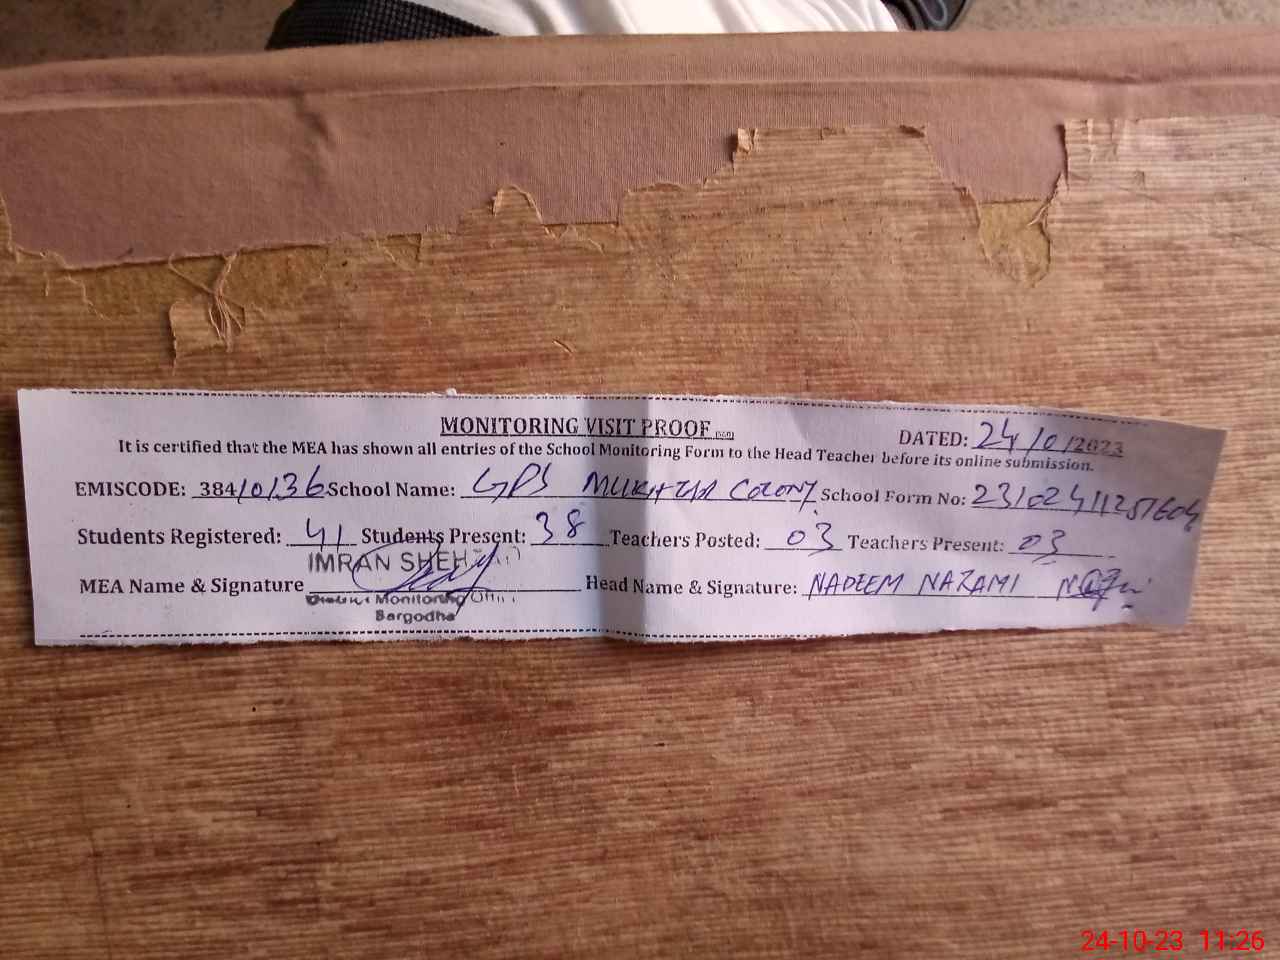 MONITORING VISIT PROOF
DATED: 24/10/2023
It is certified that the MEA has shown all entries of the School Monitoring Form to the Head Teacher before its online submission.
EMISCODE: 38410136 School Name: GPS MUKHTAR COLONY School Form No:
Students Registered: 41 Students Present: 38 Teachers Posted: 03 Teachers Present: 03
IMRAN SHEHZAD
MEA Name & Signature Head Name & Signature: NADEEM NAZAMI
Monitoring
Sargodha
24-10-23 11:26